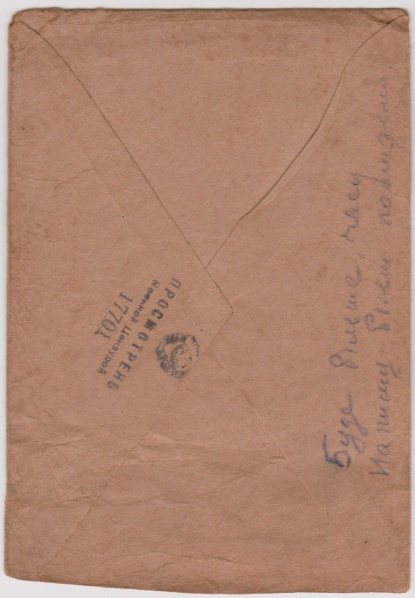 ПРОСМОТРЕНО
Военной Цензурой
17701
Буде більше часу
Напишу більш